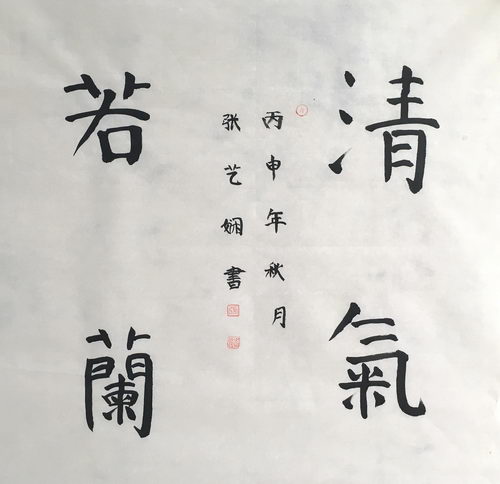 清氣
若蘭
丙申年秋月
张艺娴書